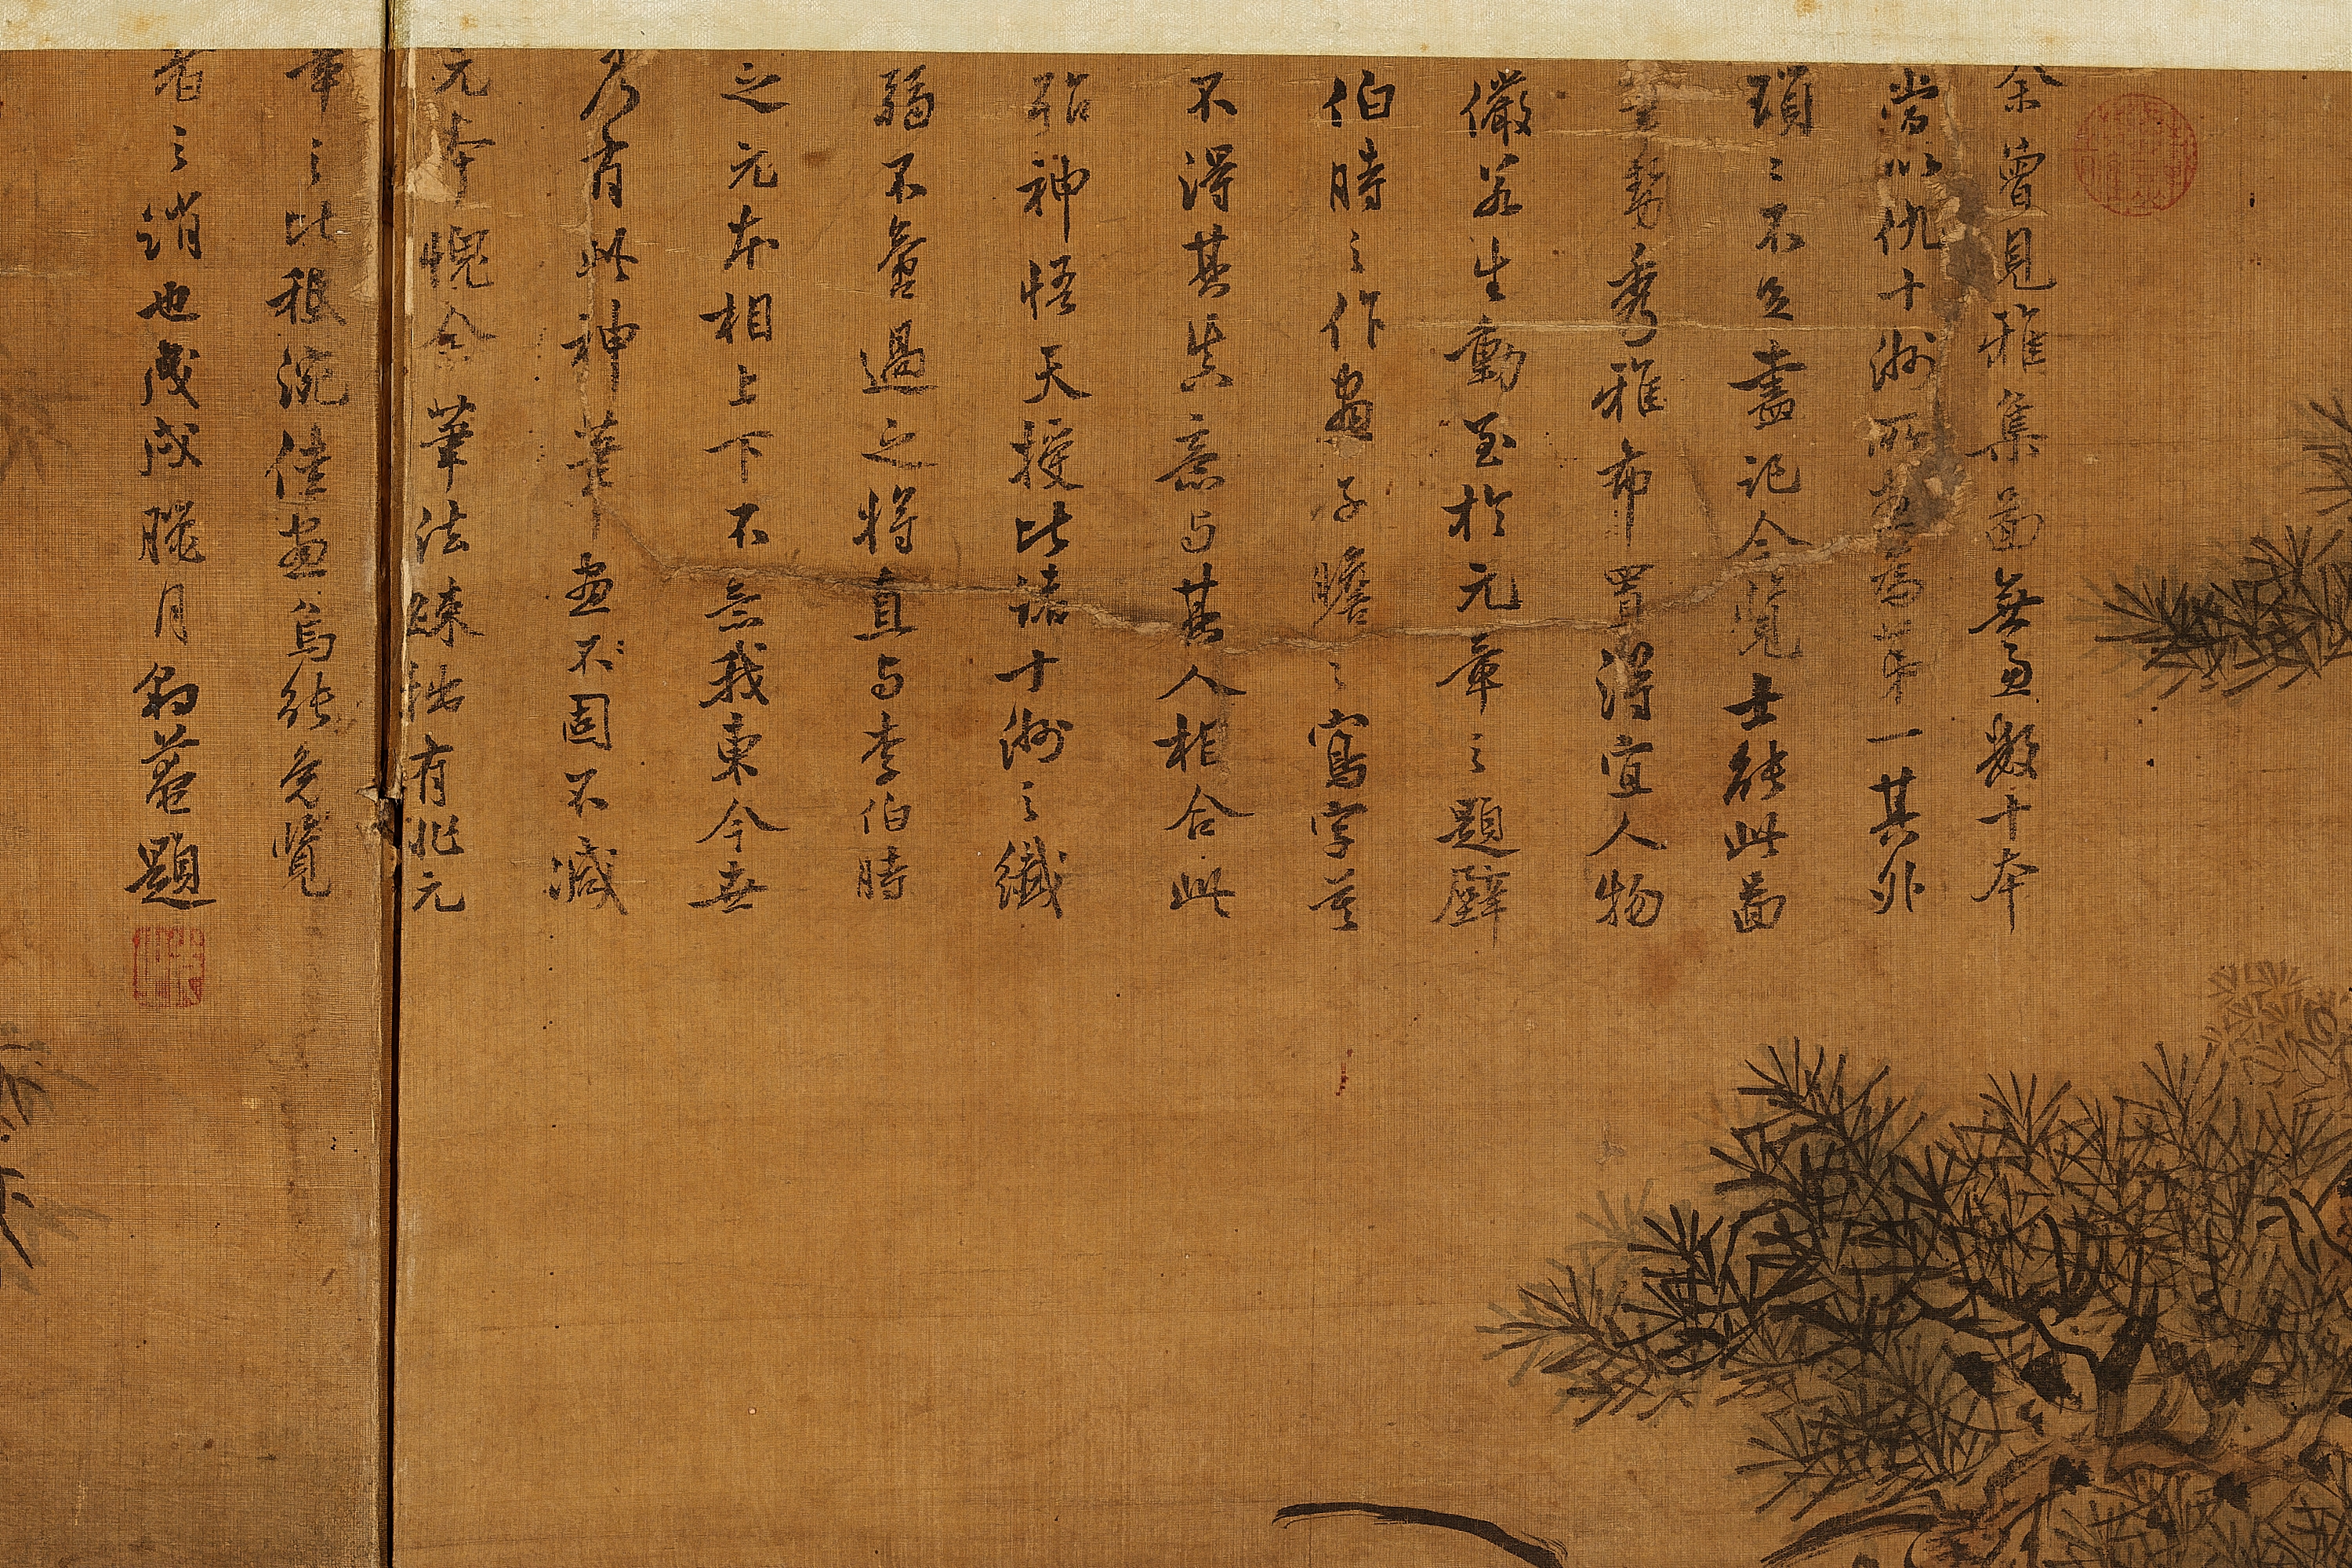 余曾見雅集啚無慮數十本
當以仇十洲所畫爲第一其外
瑣〻不足盡記今覽士能此啚
筆勢秀雅布置得宜人物
儼若生動至於元章之題壁
伯時之作畫子瞻之寫字莫
不得其眞意与其人相合此
殆神悟天授比諸十洲之纖
弱不啻過之將直与李伯時
之元本相上下不意我東今世
乃有此神筆畫不固不減
元本愧余筆法疎拙有非元
章之比狠浼佳畫烏能免覽
者之誚也歲戊臘月豹菴題